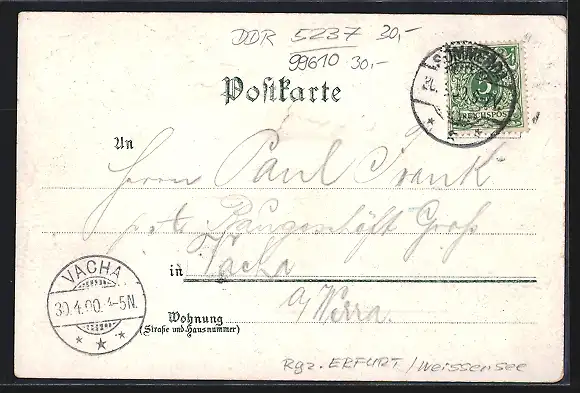 DDR 5237 30,-
99610 30,-
Postkarte
SÖMMERDA
5
REICHSPOST
An
Herrn Paul Frank
p. t. Baugeschäft Groß
in Vacha
a/Werra.
VACHA
30.4.00. 4-5N.
Wohnung
(Straße und Hausnummer)
Rgz. ERFURT / Weissensee